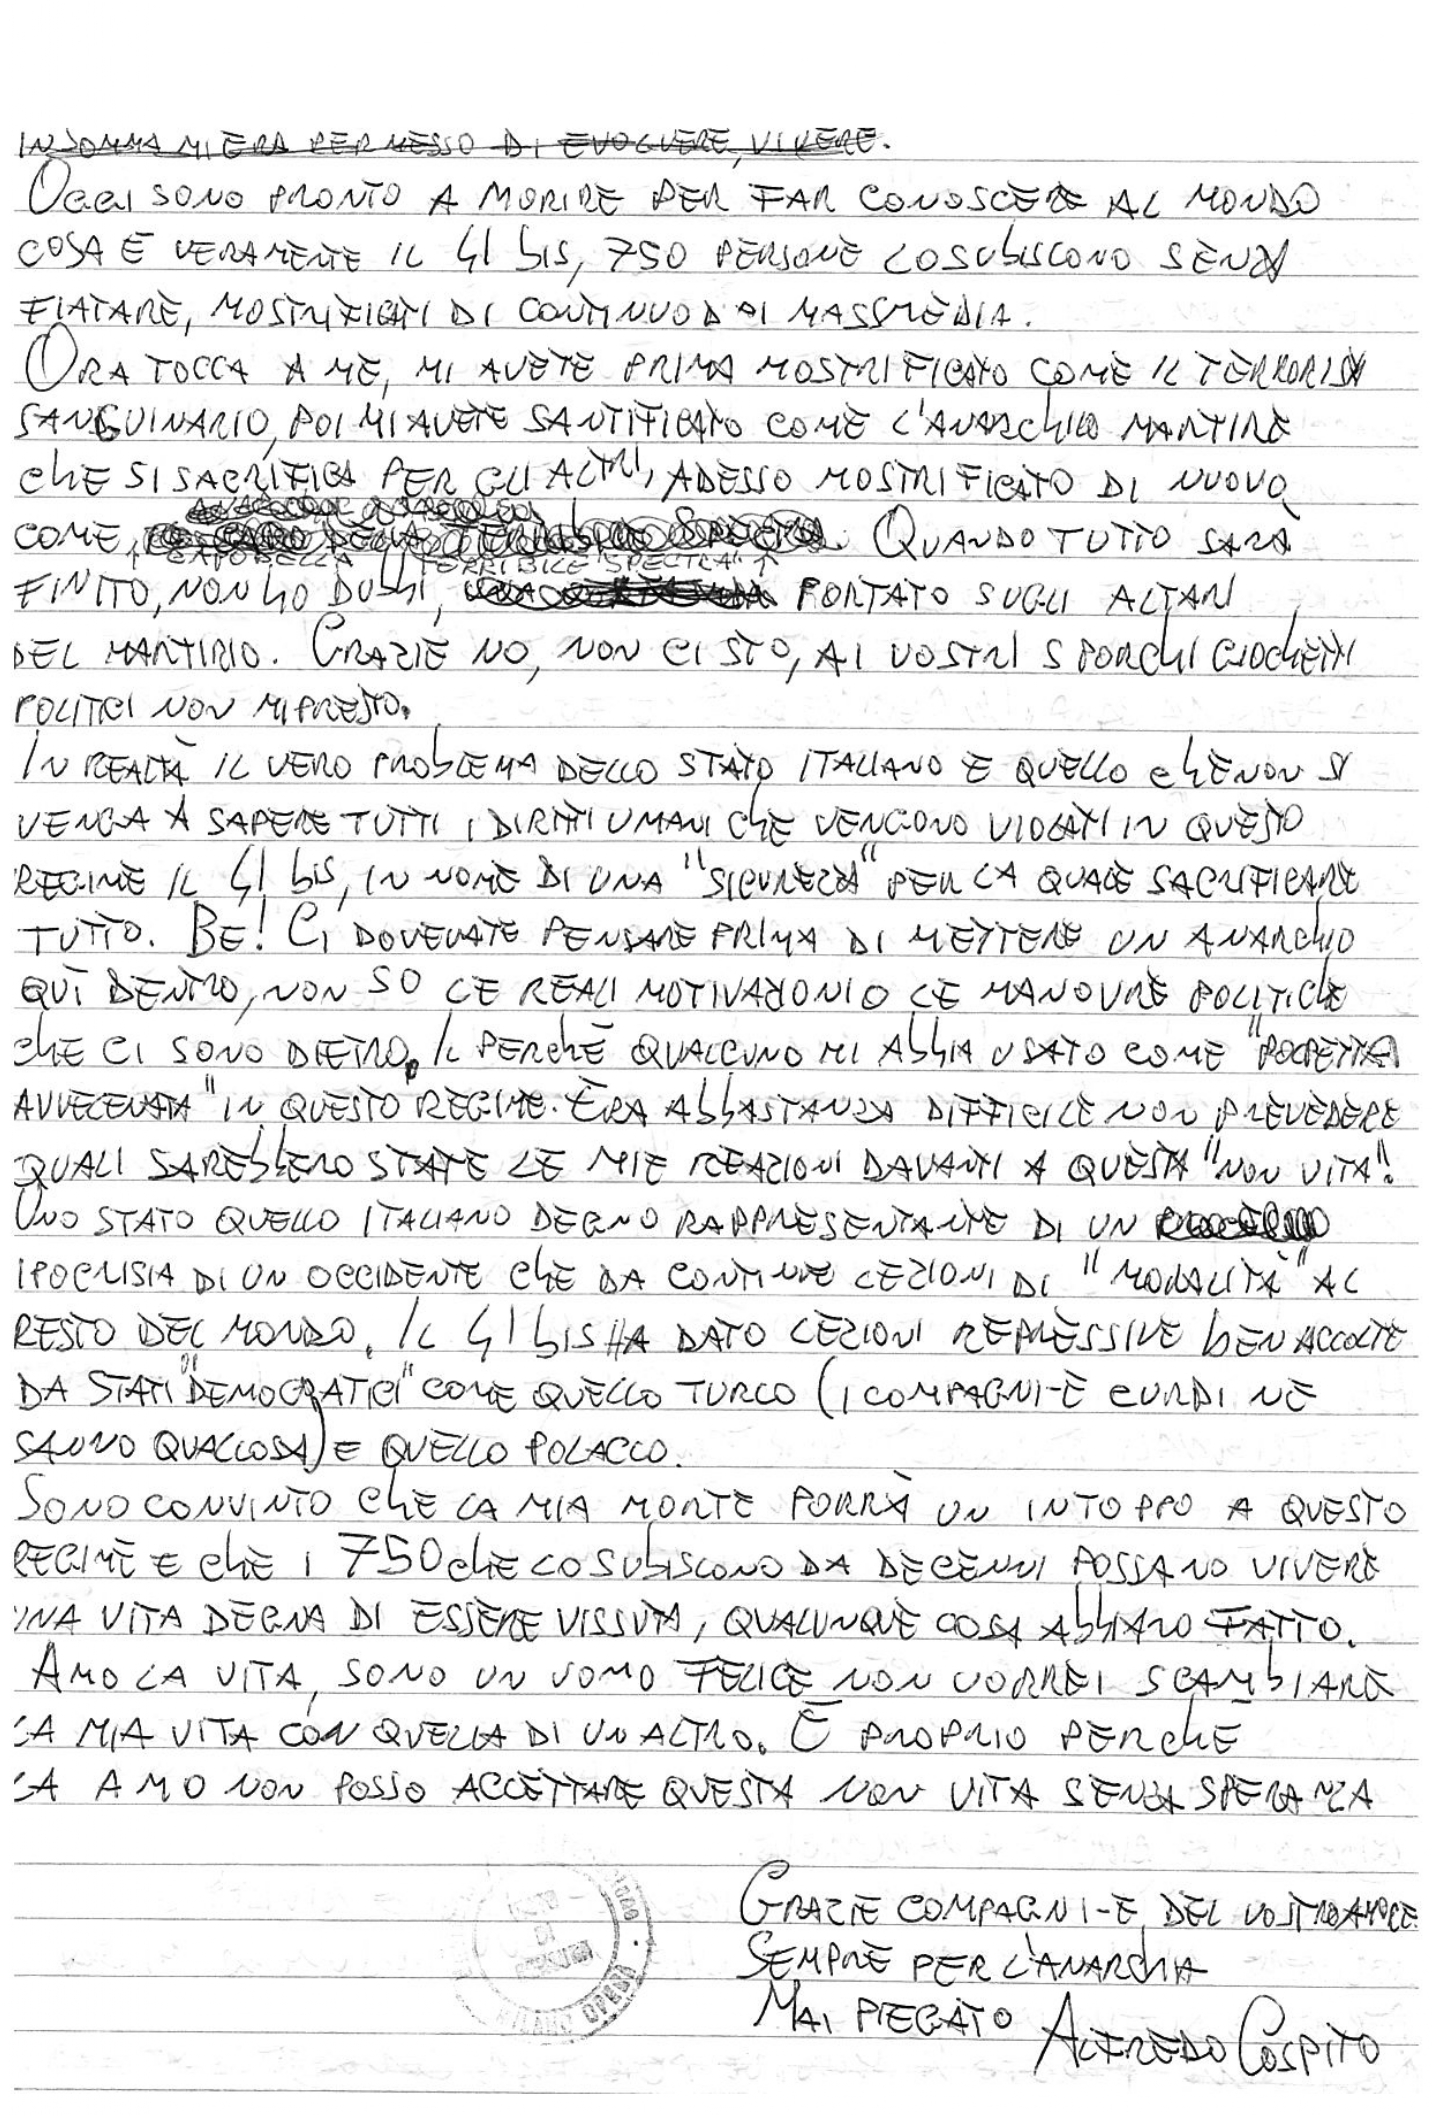 INSOMMA MI ERA PERMESSO DI EVOLVERE, VIVERE.
OGGI SONO PRONTO A MORIRE PER FAR CONOSCERE AL MONDO
COSA È VERAMENTE IL 41 bis, 750 PERSONE LO SUbISCONO SENZA
FIATARE, MOSTRIFICATI DI CONTINUO DAI MASSMEDIA.
ORA TOCCA A ME, MI AVETE PRIMA MOSTRIFICATO COME IL TERRORISTA
SANGUINARIO, POI MI AVETE SANTIFICATO COME L'ANARCHICO MARTIRE
CHE SI SACRIFICA PER GLI ALTRI, ADESSO MOSTRIFICATO DI NUOVO
COME, QUANDO TUTTO SARÀ
↑ CAPO DELLA TERRIBILE "SPECTRA" ↑
FINITO, NON HO DUbbI, PORTATO SUGLI ALTARI
DEL MARTIRIO. GRAZIE NO, NON CI STO, AI VOSTRI SPORCHI GIOCHETTI
POLITICI NON MI PRESTO.
IN REALTÀ IL VERO PROBLEMA DELLO STATO ITALIANO E QUELLO CHE NON SI
VENGA A SAPERE TUTTI I DIRITTI UMANI CHE VENGONO VIOLATI IN QUESTO
REGIME IL 41 bis, IN NOME DI UNA "SICUREZZA" PER LA QUALE SACRIFICARE
TUTTO. BE! CI DOVEVATE PENSARE PRIMA DI METTERE UN ANARCHICO
QUÌ DENTRO, NON SO LE REALI MOTIVAZIONI O LE MANOVRE POLITICHE
CHE CI SONO DIETRO. IL PERCHÈ QUALCUNO MI AbbIA USATO COME "POLPETTA
AVVELENATA" IN QUESTO REGIME. ERA AbbASTANZA DIFFICILE NON PREVEDERE
QUALI SAREbbERO STATE LE MIE REAZIONI DAVANTI A QUESTA "NON VITA".
UNO STATO QUELLO ITALIANO DEGNO RAPPRESENTANTE DI UN
IPOCRISIA DI UN OCCIDENTE CHE DA CONTINUE LEZIONI DI "MORALITÀ" AL
RESTO DEL MONDO. IL 41 bis HA DATO LEZIONI REPRESSIVE bEN ACCOLTE
DA STATI "DEMOCRATICI" COME QUELLO TURCO (I COMPAGNI-E CURDI NE
SANNO QUALCOSA) E QUELLO POLACCO.
SONO CONVINTO CHE LA MIA MORTE PORRÀ UN INTOPPO A QUESTO
REGIME E CHE I 750 CHE LO SUbISCONO DA DECENNI POSSANO VIVERE
UNA VITA DEGNA DI ESSERE VISSUTA, QUALUNQUE COSA AbbIANO FATTO.
AMO LA VITA, SONO UN UOMO FELICE NON VORREI SCAMbIARE
LA MIA VITA CON QUELLA DI UN ALTRO. È PROPRIO PERCHÈ
LA AMO NON POSSO ACCETTARE QUESTA NON VITA SENZA SPERANZA
GRAZIE COMPAGNI-E DEL VOSTRO AMORE
SEMPRE PER L'ANARCHIA
MAI PIEGATO ALFREDO COSPITO
MILANO OPERA